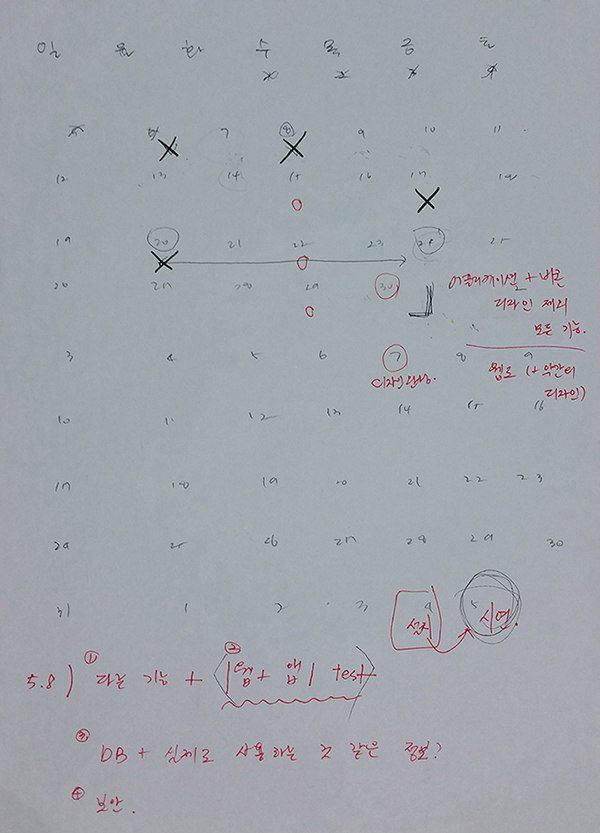 일 월 화 수 목 금 토
1 2 3 4
5 6 7 8 9 10 11
12 13 14 15 16 17 18
19 20 21 22 23 24 25
26 27 28 29 30
어플리케이션 + 버튼
디자인 제외
모든 기능.
3 4 5 6 7 8 9
디자인 완성.
웹로 (+ 약간의
디자인)
10 11 12 13 14 15 16
17 18 19 20 21 22 23
24 25 26 27 28 29 30
31 1 2 3 4 5
설치 시연.
5.8) ① 다른 기능 + ② (웹 + 앱) test
③ DB + 실제로 사용하는 것 같은 정보?
④ 보안.